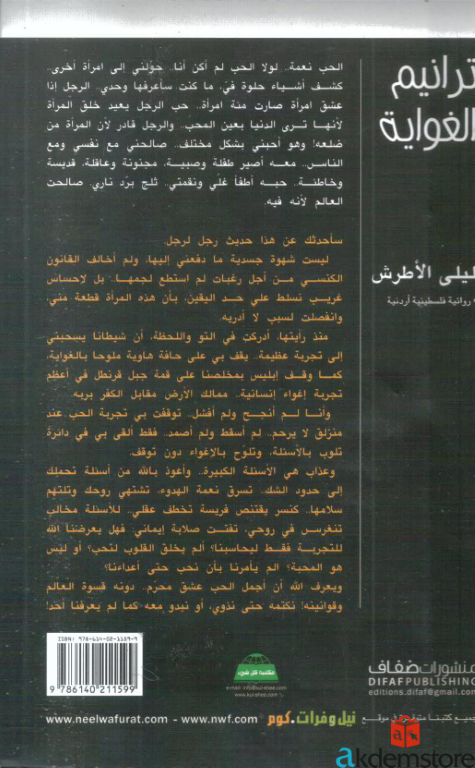 ترانيم
الغواية
ليلى الأطرش
روائية فلسطينية أردنية
الحب نعمة.. لولا الحب لم أكن أنا.. حوّلني إلى امرأة أخرى..
كشف أشياء حلوة فيّ، ما كنت سأعرفها وحدي. الرجل إذا
عشق امرأة صارت منة امرأة.. حب الرجل يعيد خلق المرأة
لأنها ترى الدنيا بعين المحب.. والرجل قادر لأن المرأة من
ضلعه! وهو أحبني بشكل مختلف.. صالحني مع نفسي ومع
الناس.. معه أصير طفلة وصبية، مجنونة وعاقلة، قديسة
وخاطئة.. حبه أطفأ غلّي ونقمتي.. ثلج برّد ناري. صالحت
العالم لأنه فيه.
سأحدثك عن هذا حديث رجل لرجل.
ليست شهوة جسدية ما دفعني إليها، ولم أخالف القانون
الكنسي من أجل رغبات لم أستطع لجمها.. بل لإحساس
غريب تسلط علي حد اليقين، بأن هذه المرأة قطعة مني،
وانفصلت لسبب لا أدريه.
منذ رأيتها، أدركت في التو واللحظة، أن شيطانا يسحبني
إلى تجربة عظيمة.. يقف بي على حافة هاوية ملوحا بالغواية،
كما وقف إبليس بمخلصنا على قمة جبل قرنطل في أعظم
تجربة إغواء إنسانية.. ممالك الأرض مقابل الكفر بربه.
وأنا لم أنجح ولم أفشل.. توقفت بي تجربة الحب عند
منزلق لا يرحم.. لم أسقط ولم أصمد.. فقط ألقى بي في دائرة
تلوب بالأسئلة، وتلوح بالإغواء دون توقف.
وعذاب هي الأسئلة الكبيرة.. وأعوذ بالله من أسئلة تحملك
إلى حدود الشك.. تسرق نعمة الهدوء. تشتهي روحك وتلتهم
سلامها. كنسر يقتنص فريسة تخطف عقلي.. للأسئلة مخالب
تنغرس في روحي، تفتت صلابة إيماني فهل يعرضنا الله
للتجربة فقط ليحاسبنا؟ ألم يخلق القلوب لتحب؟ أو ليس
هو المحبة؟ ألم يأمرنا بأن نحب حتى أعداءنا؟
ويعرف الله أن أجمل الحب عشق محرّم.. دونه قسوة العالم
وقوانينه! نكتمه حتى نذوي، أو نبدو معه كما لم يعرفنا أحد!
ISBN: 978-614-02-1159-9
9 786140 211599
مكتبة كل شيء
www.kurshee.com
منشورات ضفاف
DIFAF PUBLISHING
editions.difaf@gmail.com
جميع كتبنا متوفرة في موقع
نيل وفرات.كوم
www.neelwafurat.com - www.nwf.com
akdemstore